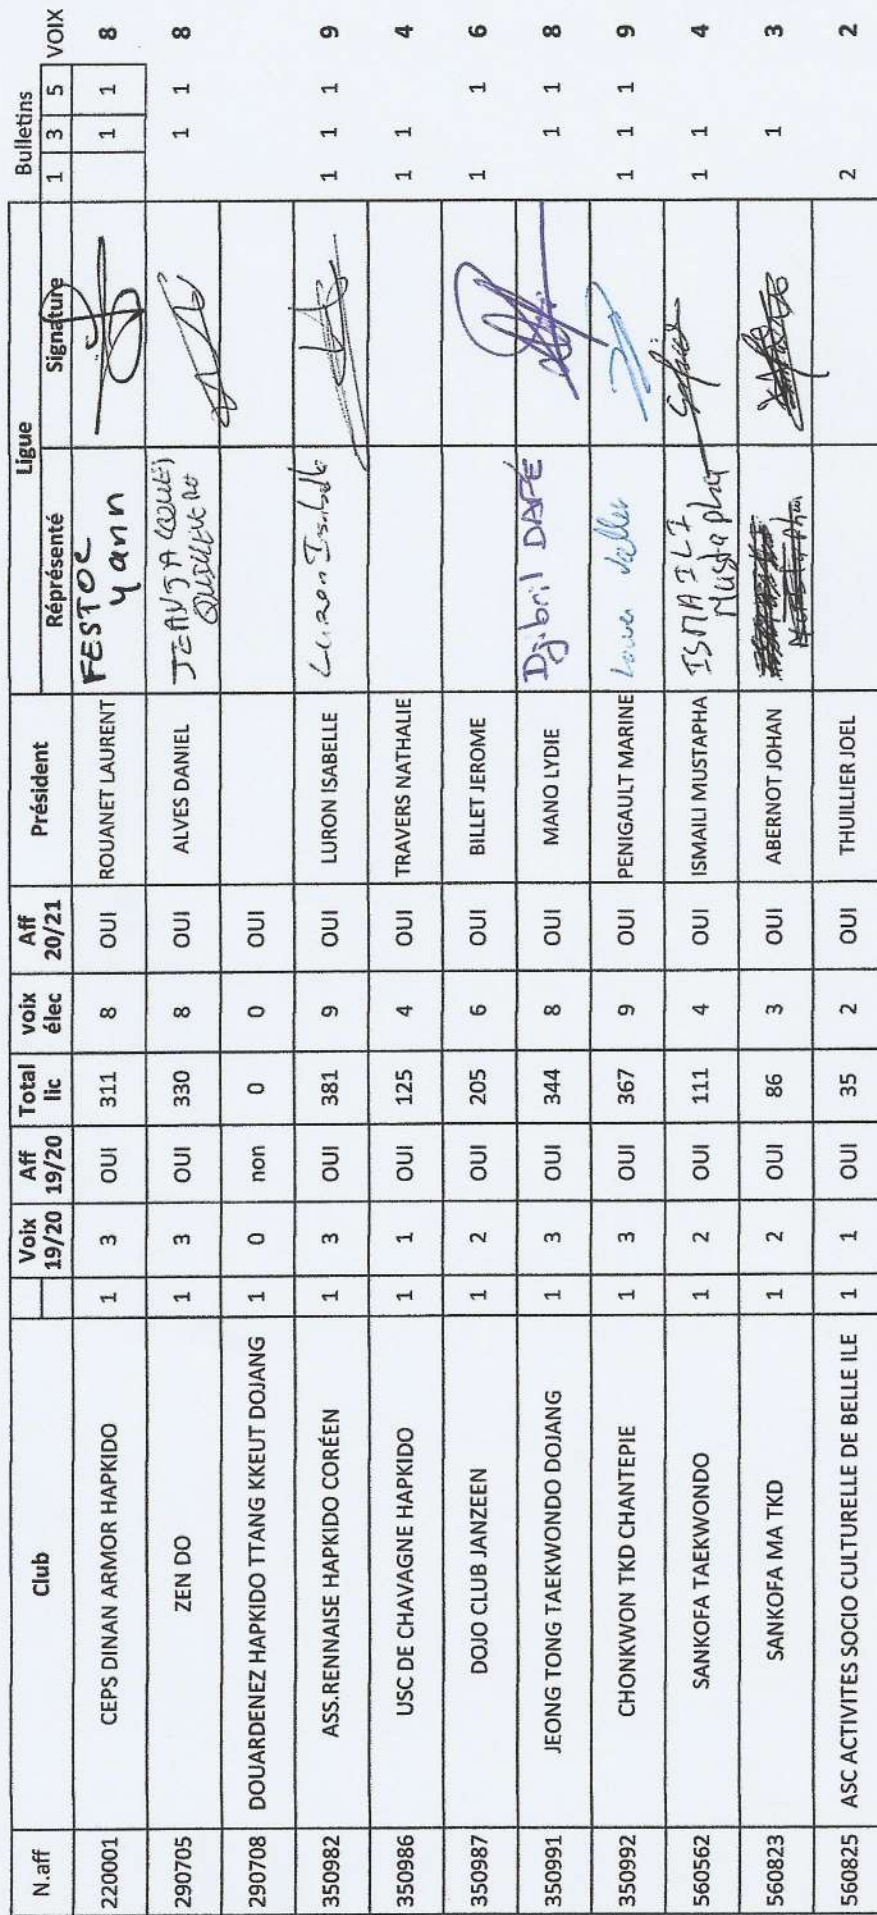 Ligue Bulletins
N.aff Club Voix 19/20 Aff 19/20 Total lic voix élec Aff 20/21 Président Réprésenté Signature 1 3 5 VOIX
220001 CEPS DINAN ARMOR HAPKIDO 1 3 OUI 311 8 OUI ROUANET LAURENT FESTOC yann 1 1 8
290705 ZEN DO 1 3 OUI 330 8 OUI ALVES DANIEL 1 1 8
290708 DOUARDENEZ HAPKIDO TTANG KKEUT DOJANG 1 0 non 0 0 OUI
350982 ASS.RENNAISE HAPKIDO CORÉEN 1 3 OUI 381 9 OUI LURON ISABELLE Luron Isabelle 1 1 1 9
350986 USC DE CHAVAGNE HAPKIDO 1 1 OUI 125 4 OUI TRAVERS NATHALIE 1 1 4
350987 DOJO CLUB JANZEEN 1 2 OUI 205 6 OUI BILLET JEROME 1 1 6
350991 JEONG TONG TAEKWONDO DOJANG 1 3 OUI 344 8 OUI MANO LYDIE Djibril DAFE 1 1 8
350992 CHONKWON TKD CHANTEPIE 1 3 OUI 367 9 OUI PENIGAULT MARINE 1 1 1 9
560562 SANKOFA TAEKWONDO 1 2 OUI 111 4 OUI ISMAILI MUSTAPHA ISMAILI Mustapha 1 1 4
560823 SANKOFA MA TKD 1 2 OUI 86 3 OUI ABERNOT JOHAN 1 3
560825 ASC ACTIVITES SOCIO CULTURELLE DE BELLE ILE 1 1 OUI 35 2 OUI THUILLIER JOEL 2 2